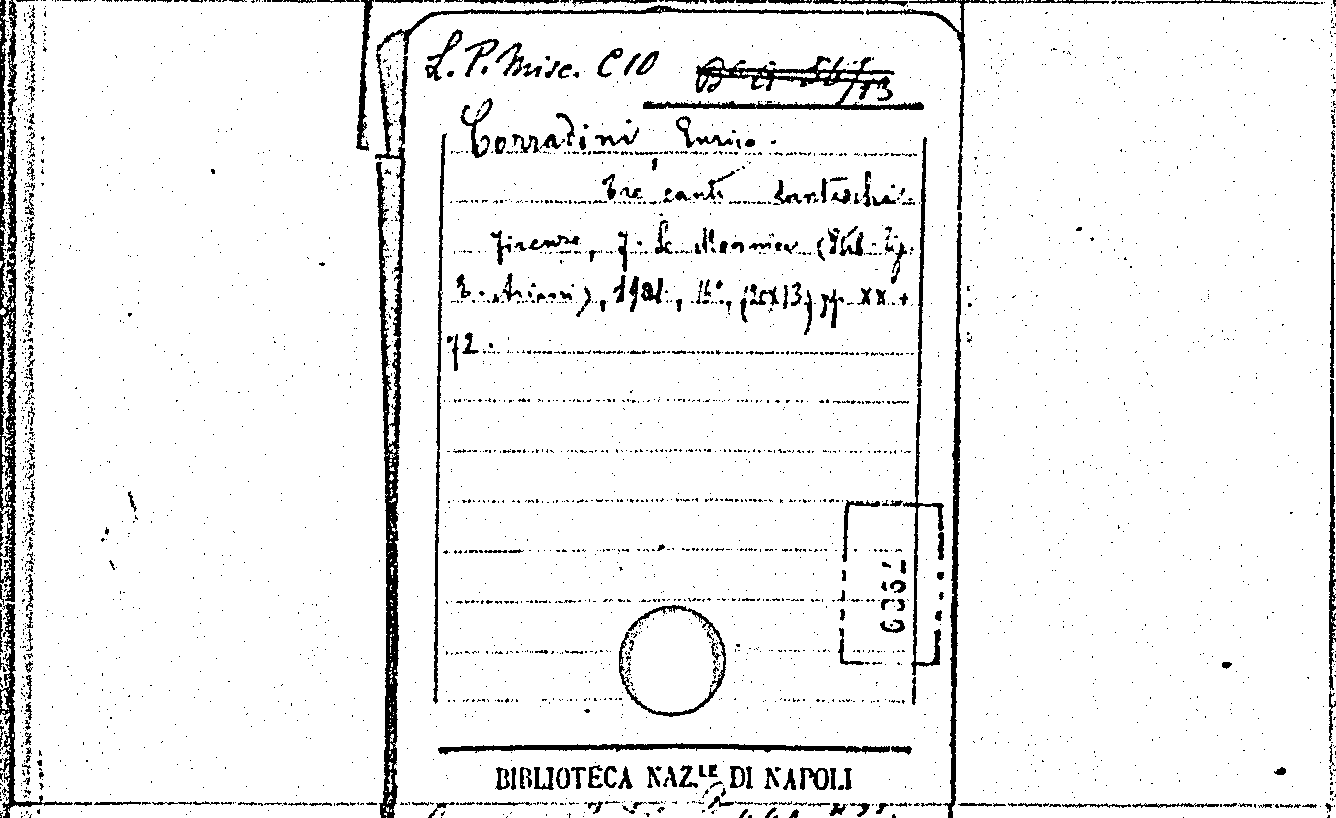 L. P. Misc. C 10
Corradini Enrico.
Tre canti danteschi.
Firenze, F. Le Monnier (Stab. Tip.
E. Ariani), 1901, 16°, (20x13) pp. XX +
72.
BIBLIOTECA NAZ.LE DI NAPOLI